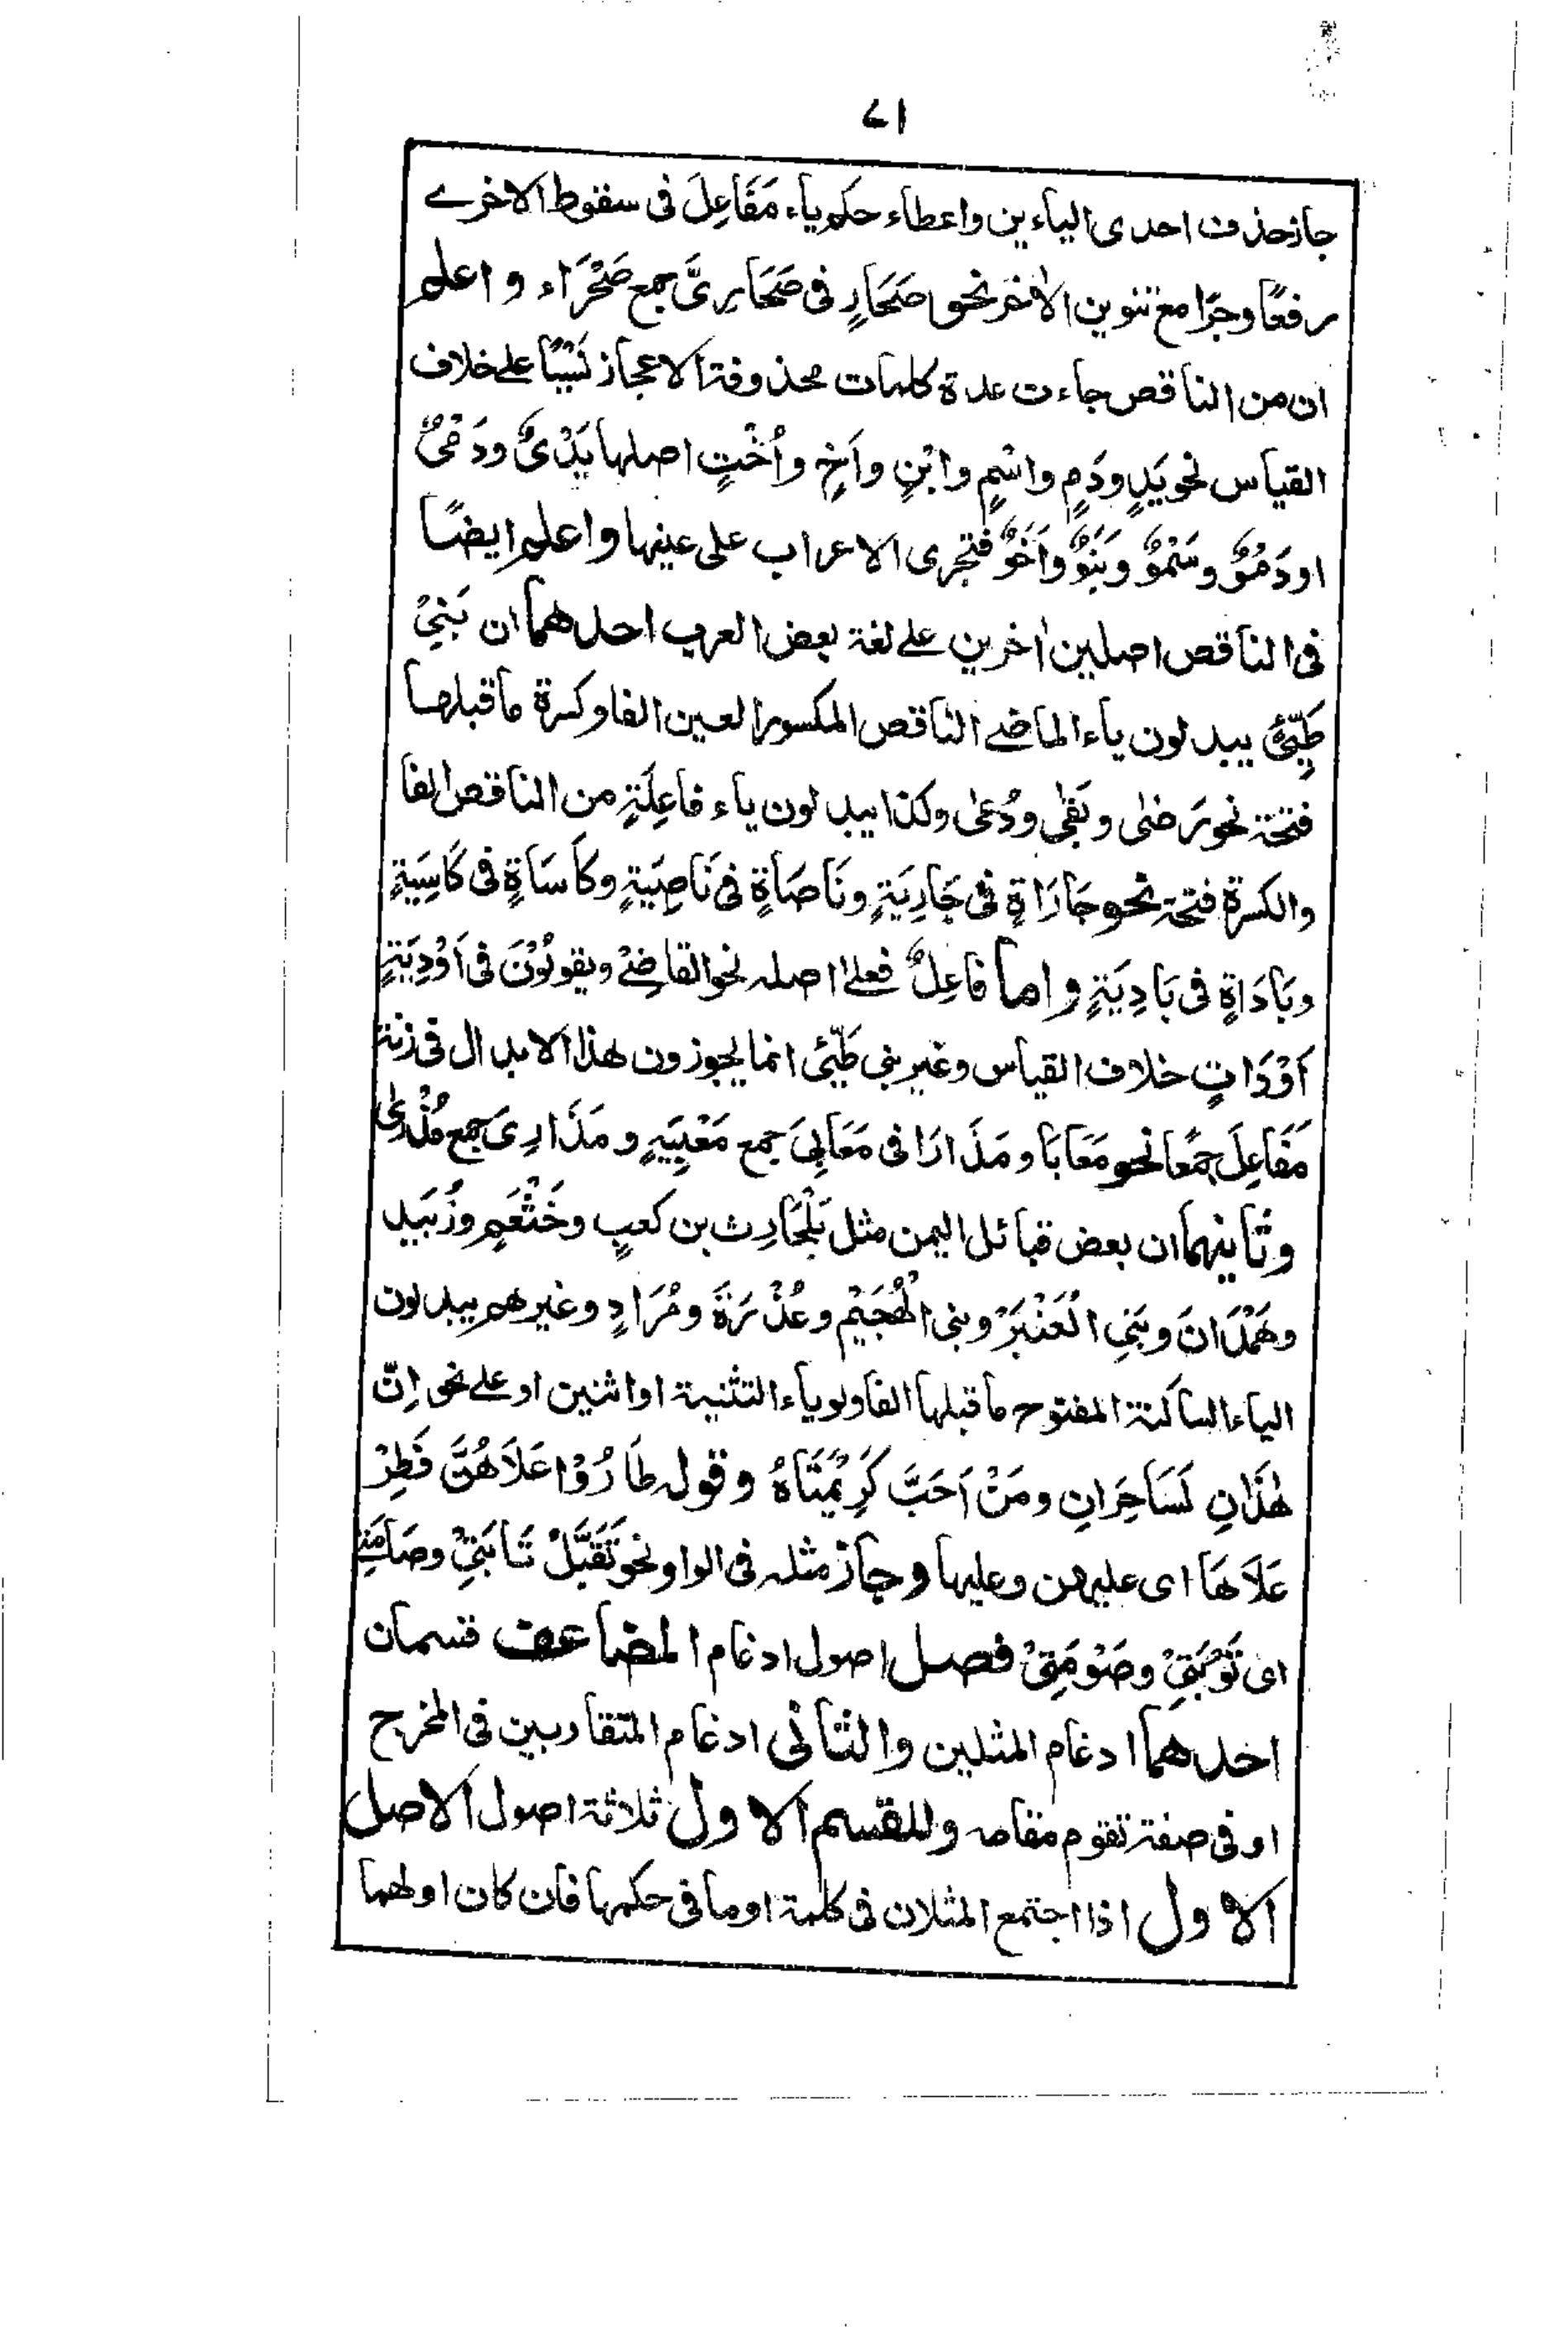 ٧١
جاز حذف احدى الياءين واعطاء حكم ياء مَفَاعِلَ فى سقوط الاخرے
رفعًا وجرًا مع تنوين الاٰخر نحو صَحَارٍ فى صَحَارِىَّ جمع صَحْرَاء واعلم
ان من الناقص جاءت عدة كلمات محذوفة الاعجاز نَسْيًا علے خلاف
القياس نحو يَدٍ ودَمٍ واسْمٍ وابْنٍ واَخٍ واُخْتٍ اصلها يَدْىٌ ودَمْىٌ
او دَمْوٌ وسَمْوٌ وبَنَوٌ واَخَوٌ فتجرى الاعراب على عينها واعلم ايضًا
فى الناقص اصلين اٰخرين علے لغة بعض العرب احدهما ان بَنِىْ
طَيِّئٍ يبدلون ياء الماضے الناقص المكسور العين الفا وكسرة ما قبلها
فتحة نحو رَضٰى وبَقٰى ودُعٰى وكذا يبدلون ياء فاعِلَةٍ من الناقص الفا
والكسرة فتحة نحو جَارَاةٍ فى جَارِيَةٍ ونَاصَاةٍ فى نَاصِيَةٍ وكَاسَاةٍ فى كَاسِيَةٍ
وبَادَاةٍ فى بَادِيَةٍ واما فَاعِلٌ فعلےٰ اصله نحو القاضِىْ ويقولُوْنَ فى اَوْدِيَةٍ
اَوْدَاتٍ خلاف القياس وغير بنى طَيِّئى انما يجوزون هذا الابدال فى زنة
مَفَاعِلَ جمعًا نحو مَعَابَا ومَدَارَا فى مَعَابِىَ جمع مَعْيِيَةٍ ومَدَارِىَ جمع مُدْرٰى
وثانيهما ان بعض قبائل اليمن مثل بَلْحَارِث بن كعبٍ وخَثْعَمٍ وزُبَيد
وهَمْدَانَ وبَنِى الْعَنْبَرْ وبنى الْهُجَيْمِ وعُذْرَةَ ومُرَادٍ وغيرهم يبدلون
الياء الساكنة المفتوح ما قبلها الفا ولو ياء التثنية او اثنين او علے نحو اِنّ
هٰذَانِ لَسَاحِرَانِ ومَنْ اَحَبَّ كَرِيْمَتَاهُ وقوله طَارُوْا عَلَاهُنَّ فَطِرْ
عَلَاهَا اى عليهن وعليها وجاز مثله فى الواو نحو تَقَبَّلْ تَابَتِىْ وصَامَتِىْ
اى تَوْبَتِىْ وصَوْمَتِىْ فصل اصول ادغام المضاعف قسمان
احدهما ادغام المثلين والثانى ادغام المتقاربين فى المخرج
او فى صفة تقوم مقامه وللقسم الاول ثلاثة اصول الاصل
الاول اذا اجتمع المثلان فى كلمة او ما فى حكمها فان كان اولهما